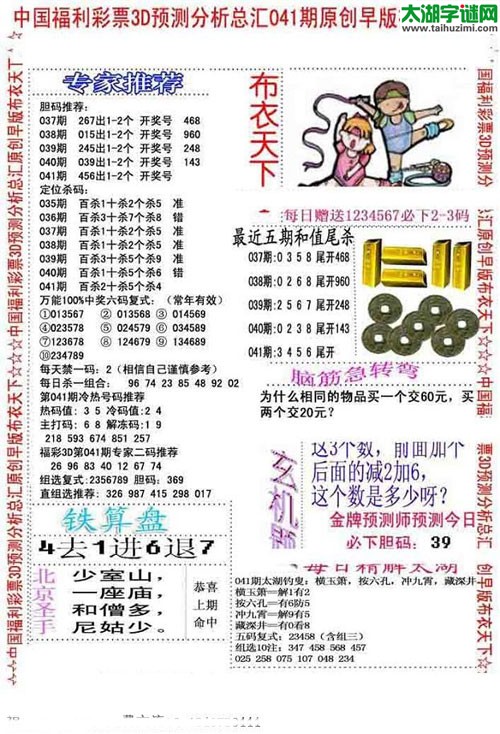 太湖字谜网
www.taihuzimi.com
中国福利彩票3D预测分析总汇041期原创早版
专家推荐
胆码推荐:
037期 267出1-2个 开奖号 468
038期 015出1-2个 开奖号 960
039期 245出1-2个 开奖号 248
040期 039出1-2个 开奖号 143
041期 456出1-2个 开奖号
定位杀码:
035期 百杀1十杀2个杀5 准
036期 百杀3十杀7个杀8 错
037期 百杀1十杀5个杀7 准
038期 百杀1十杀3个杀5 准
039期 百杀1十杀3个杀9 准
040期 百杀1十杀5个杀6 错
041期 百杀2十杀5个杀4
万能100%中奖六码复式: (常年有效)
①013567 ②013568 ③014569
④023578 ⑤024579 ⑥034589
⑦123678 ⑧124679 ⑨134689
⑩234789
每天禁一码: 2 (相信自己谨慎参考)
每日杀一组合: 96 74 23 85 48 92 02
第041期冷热号码推荐
热码值: 3 5 冷码值: 2 4
主打码: 6 8 解冻码: 1 9
218 593 674 851 257
福彩3D第041期专家二码推荐
26 96 83 40 12 67 74
组选复式: 2356789 胆码: 369
直组选推荐: 326 987 415 298 017
铁算盘
4去1进6退7
北京圣于
少室山,
一座庙,
和僧多,
尼姑少。
恭喜
上期
命中
布衣天下
每日赠送1234567必下2-3码
最近五期和值尾杀
037期:0 3 5 8 尾开468
038期:0 2 6 8 尾开960
039期:2 5 6 7 尾开248
040期:0 2 3 8 尾开143
041期:3 4 5 6 尾开
脑筋急转弯
为什么相同的物品买一个交60元, 买
两个交20元?
玄机题
这3个数, 前面加个
后面的减2加6,
这个数是多少呀?
金牌预测师预测今日
必下胆码: 39
每日精解太湖
041期太湖钓叟: 横玉箫, 按六孔, 冲九霄, 藏深井
横玉箫=解1有2
按六孔=有6防5
冲九霄=解9有5
藏深井=有0看8
五码复式: 23458 (含组三)
组选10注: 347 458 568 457
025 258 075 107 048 234
中国福利彩票3D预测分析总汇原创早版布衣天下☆☆☆